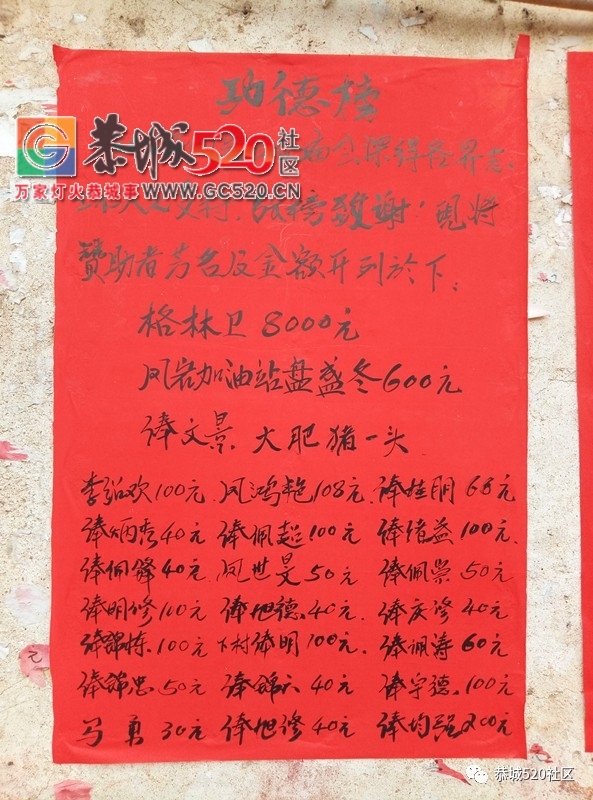 功德榜
恭城520社区
万家灯火恭城事 WWW.GC520.CN
张榜致谢!现将
赞助者芳名及金额开列於下:
格林卫 8000元
凤岩加油站盘盛冬600元
俸文景 大肥猪一头
李绍欢100元 凤鸿艳108元 俸桂朋 68元
俸炳秀40元 俸佩超100元 俸绪益100元
俸佩锋40元 凤世旻50元 俸佩崇50元
俸明修100元 俸旭德40元 俸庆修40元
俸锦栋100元 下村俸明100元 俸佩涛60元
俸锦忠50元 俸锦六40元 俸宇德100元
马勇30元 俸旭修40元 俸均强200元
元
恭城520社区